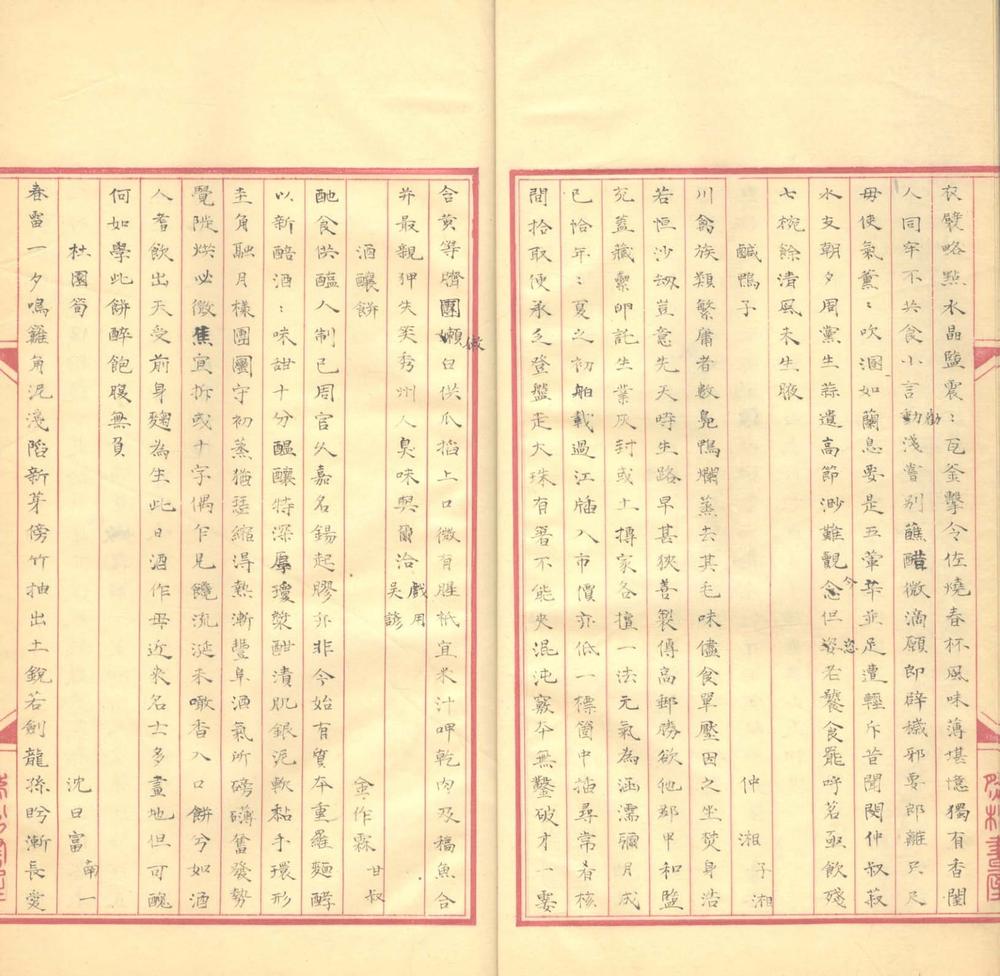 衣劈略點水晶鹽震：瓦釜擊令佐燒春杯風味薄堪憶獨有香閨
人同牢不共食小言動淺嘗別蘸醋微滴願郎辟穢邪要郎離只尺
勸
毋使氣薰：吹溷如蘭息要是五葷辛並足遭輕斥昔聞閔仲叔菽
水支朝夕周黨生蒜遺高節渺難觀念但恣若饕食罷呼茗亟飲殘
今
恣
七椀餘清風未生腋
鹹鴨子 仲湘子湘
川禽族類繁庸者數鳧鴨爛蒸去其毛味儘食單壓因之坐焚身浩
若恒沙劫豈意先天時生路早甚狹善製傳高郵勝欲他郡甲和鹽
充蓋藏橐卵託生業灰封或土摶家各擅一法元氣為涵濡彌月成
已恰年：夏之初舶載過江牐入市價亦低一標箇中插尋常肴核
間拾取便承乏登盤走大珠有箸不能夾混沌竅本無鑿破才一霎
含黃等臍團嫩白供爪掐上口微有腥祇宜米汁呷乾肉及稿魚合
做
并最親狎失笑秀州人臭味與爾洽戲用吳諺
酒釀餅 金作霖甘叔
酏食供醢人制已周官久嘉名錫起膠亦非今始有質本重羅麵酵
以新醅酒：味甜十分醞釀特深厚瓊漿酣漬肌銀泥軟黏手環形
圭角融月樣團圞守初蒸猶瑟縮得熱漸豐阜酒氣所磅礡奮發勢
覺陡烘必微焦宜拆或十字偶乍見饞流涎未噉香入口餅兮如酒
人耆飲出天受前身麴為生此日酒作母近來名士多畫地但可醜
何如學此餅醉飽腹無負
杜園筍 沈日富南一
春雷一夕鳴雞角泥淺陷新芽傍竹抽出土銳若劍龍孫盻漸長愛